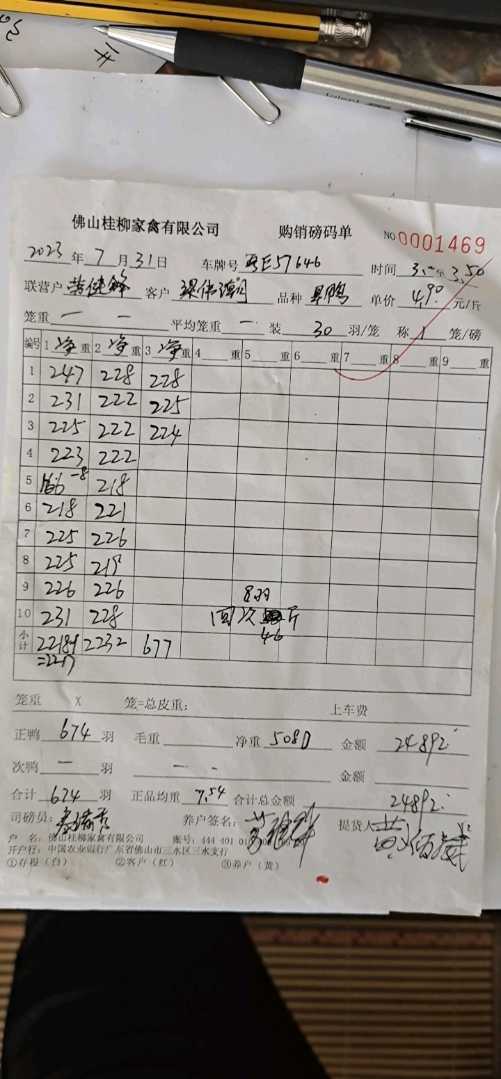 佛山桂柳家禽有限公司 购销磅码单 NO 0001469
2023 年 7 月 31 日 车牌号 E57646 时间 3.50
联营户 客户 品种 鸭 单价 4.90 元/斤
笼重 一 一 平均笼重 一 装 30 羽/笼 称 1 笼/磅
编号 1 净 重 2 净 重 3 净 重 4 重 5 重 6 重 7 重 8 重 9 重
1 247 228 228
2 231 222 225
3 225 222 224
4 223 222
5 166 -8 218
6 218 221
7 225 226
8 225 219
9 226 226 8羽
10 231 228 回次 斤
小计 2232 677 46
=2217
笼重 X 笼=总皮重: 上车费
正鸭 674 羽 毛重 净重 5080 金额 24892
次鸭 一 羽 金额
合计 674 羽 正品均重 7.54 合计总金额 24892
司磅员: 养户签名: 提货人
户 名: 佛山桂柳家禽有限公司 账号: 444 401 01
开户行: 中国农业银行广东省佛山市三水区三水支行
①存根(白) ②客户(红) ③养户(黄)